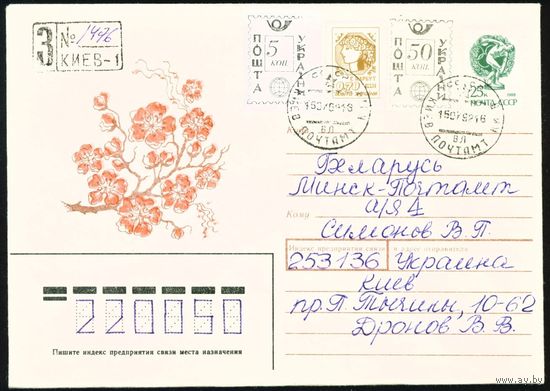 З № 1496
КИЕВ-1
ПОШТА 5 КОП. УКРАЇНИ
0,70
ПОШТА 50 КОП. УКРАЇНИ
25 к
ПОЧТА СССР
КИЕВ ПОЧТАМТ
ВЛ
КИЕВ ПОЧТАМТ
ВЛ
Куда
Беларусь
Минск-Почтамт
а/я 4
Кому
Симонов В.П.
Индекс предприятия связи и адрес отправителя
253136 Украина
Киев
пр. П Тычины, 10-62
Дронов В.В.
220050
Пишите индекс предприятия связи места назначения
www.ay.by